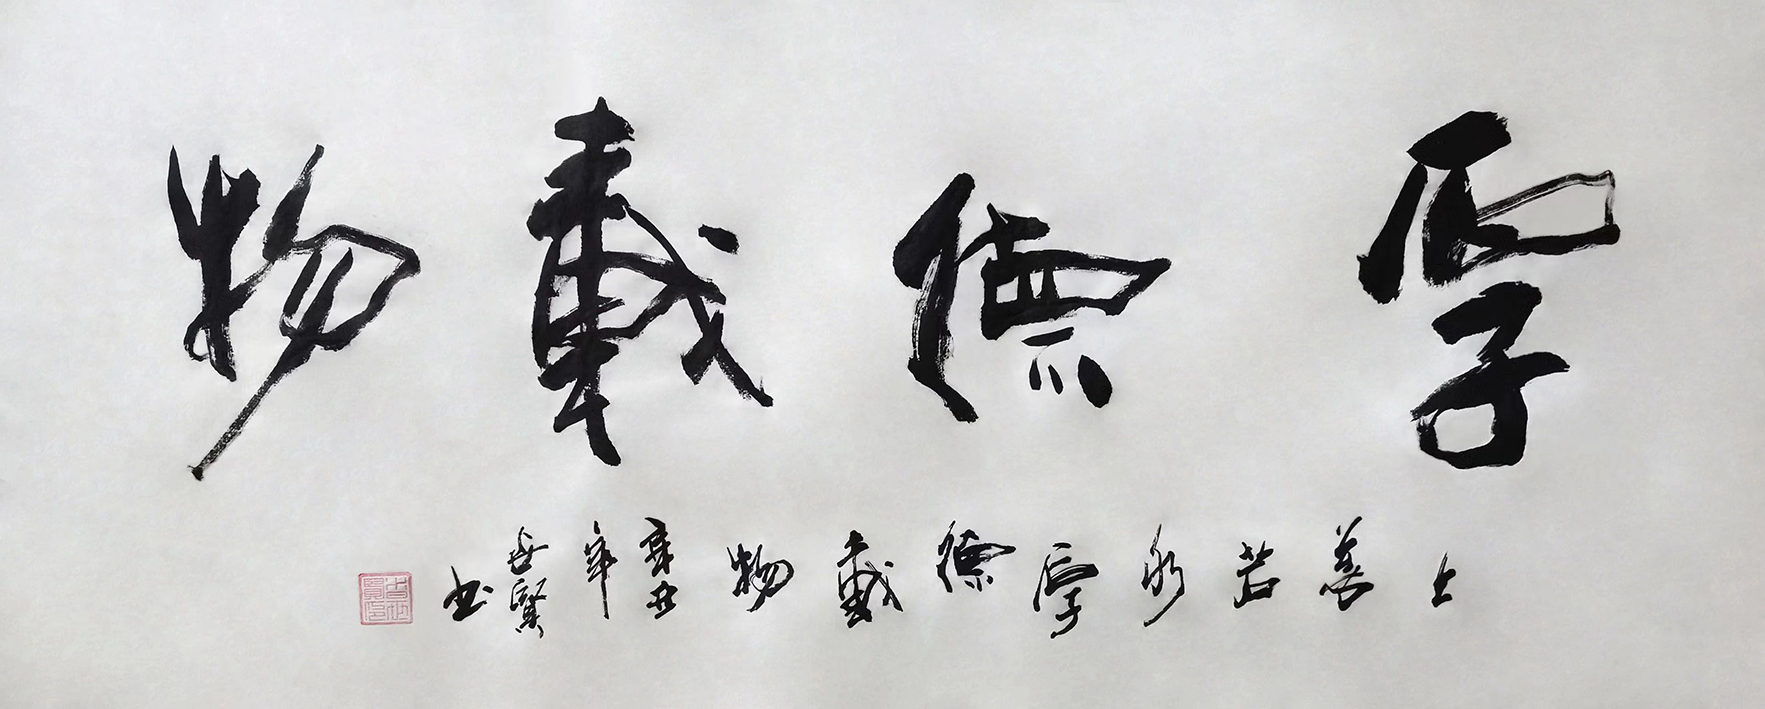 厚德載物
上善若水厚德載物辛丑年世賢书